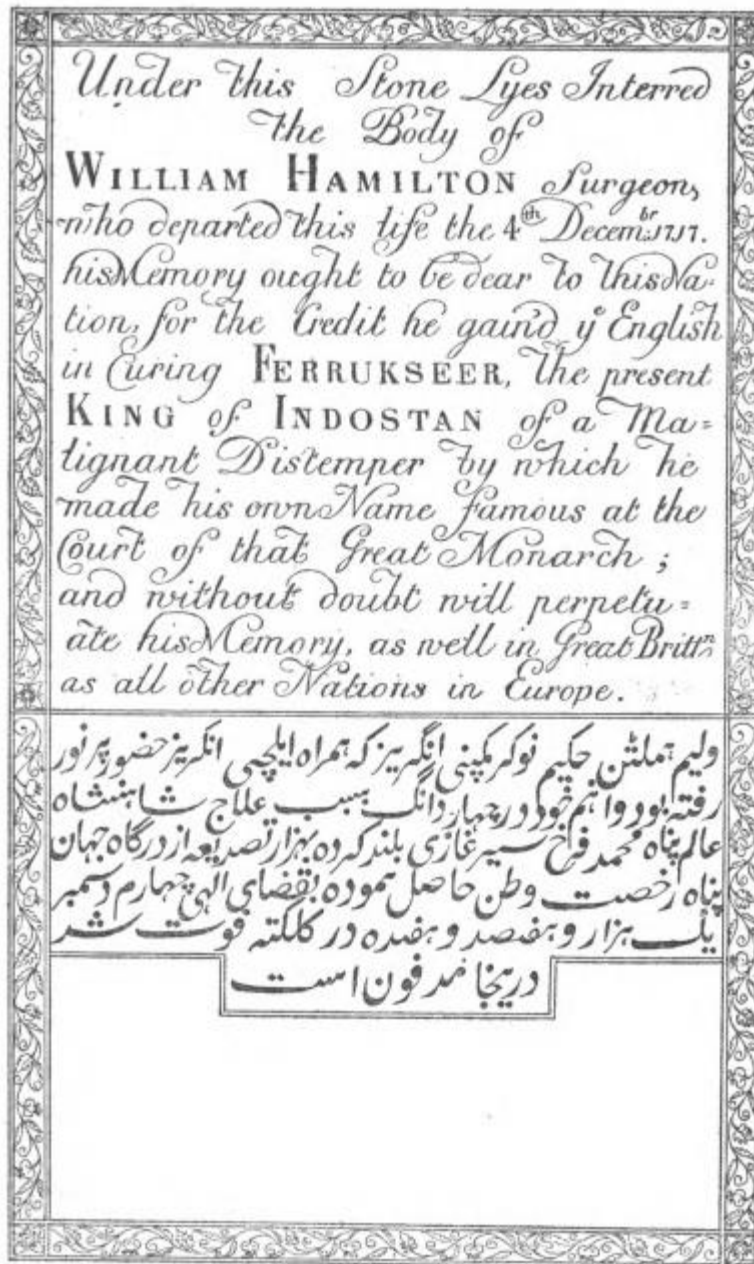 Under this Stone Lyes Interred
the Body of
WILLIAM HAMILTON Surgeon,
who departed this life the 4th Decembr. 1717.
his Memory ought to be dear to this Na-
tion, for the Credit he gain'd ye English
in Curing FERRUKSEER, the present
KING of INDOSTAN of a Ma=
lignant Distemper by which he
made his own Name famous at the
Court of that Great Monarch ;
and without doubt will perpetu=
ate his Memory, as well in Great Brittn
as all other Nations in Europe.
ولیم هملٹن حکیم نوکر کمپنی انگریز که همراه ایلچی انگریز حضور پر نور
رفته بود و اسم خود در چهار دانگ بسبب علاج شاهنشاه
عالم پناه محمد فرخ سیر غازی بلند کرده بهزار تصدیعه از درگاه جهان
پناه رخصت وطن حاصل نموده بقضای الهی چهارم دسمبر
یک هزار و هفصد و هفده در کلکته فوت شد
دریخا مدفون است